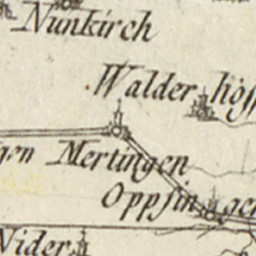 Nunkirch
Walder höff
gen Mertingen
Oppſingen
Nider